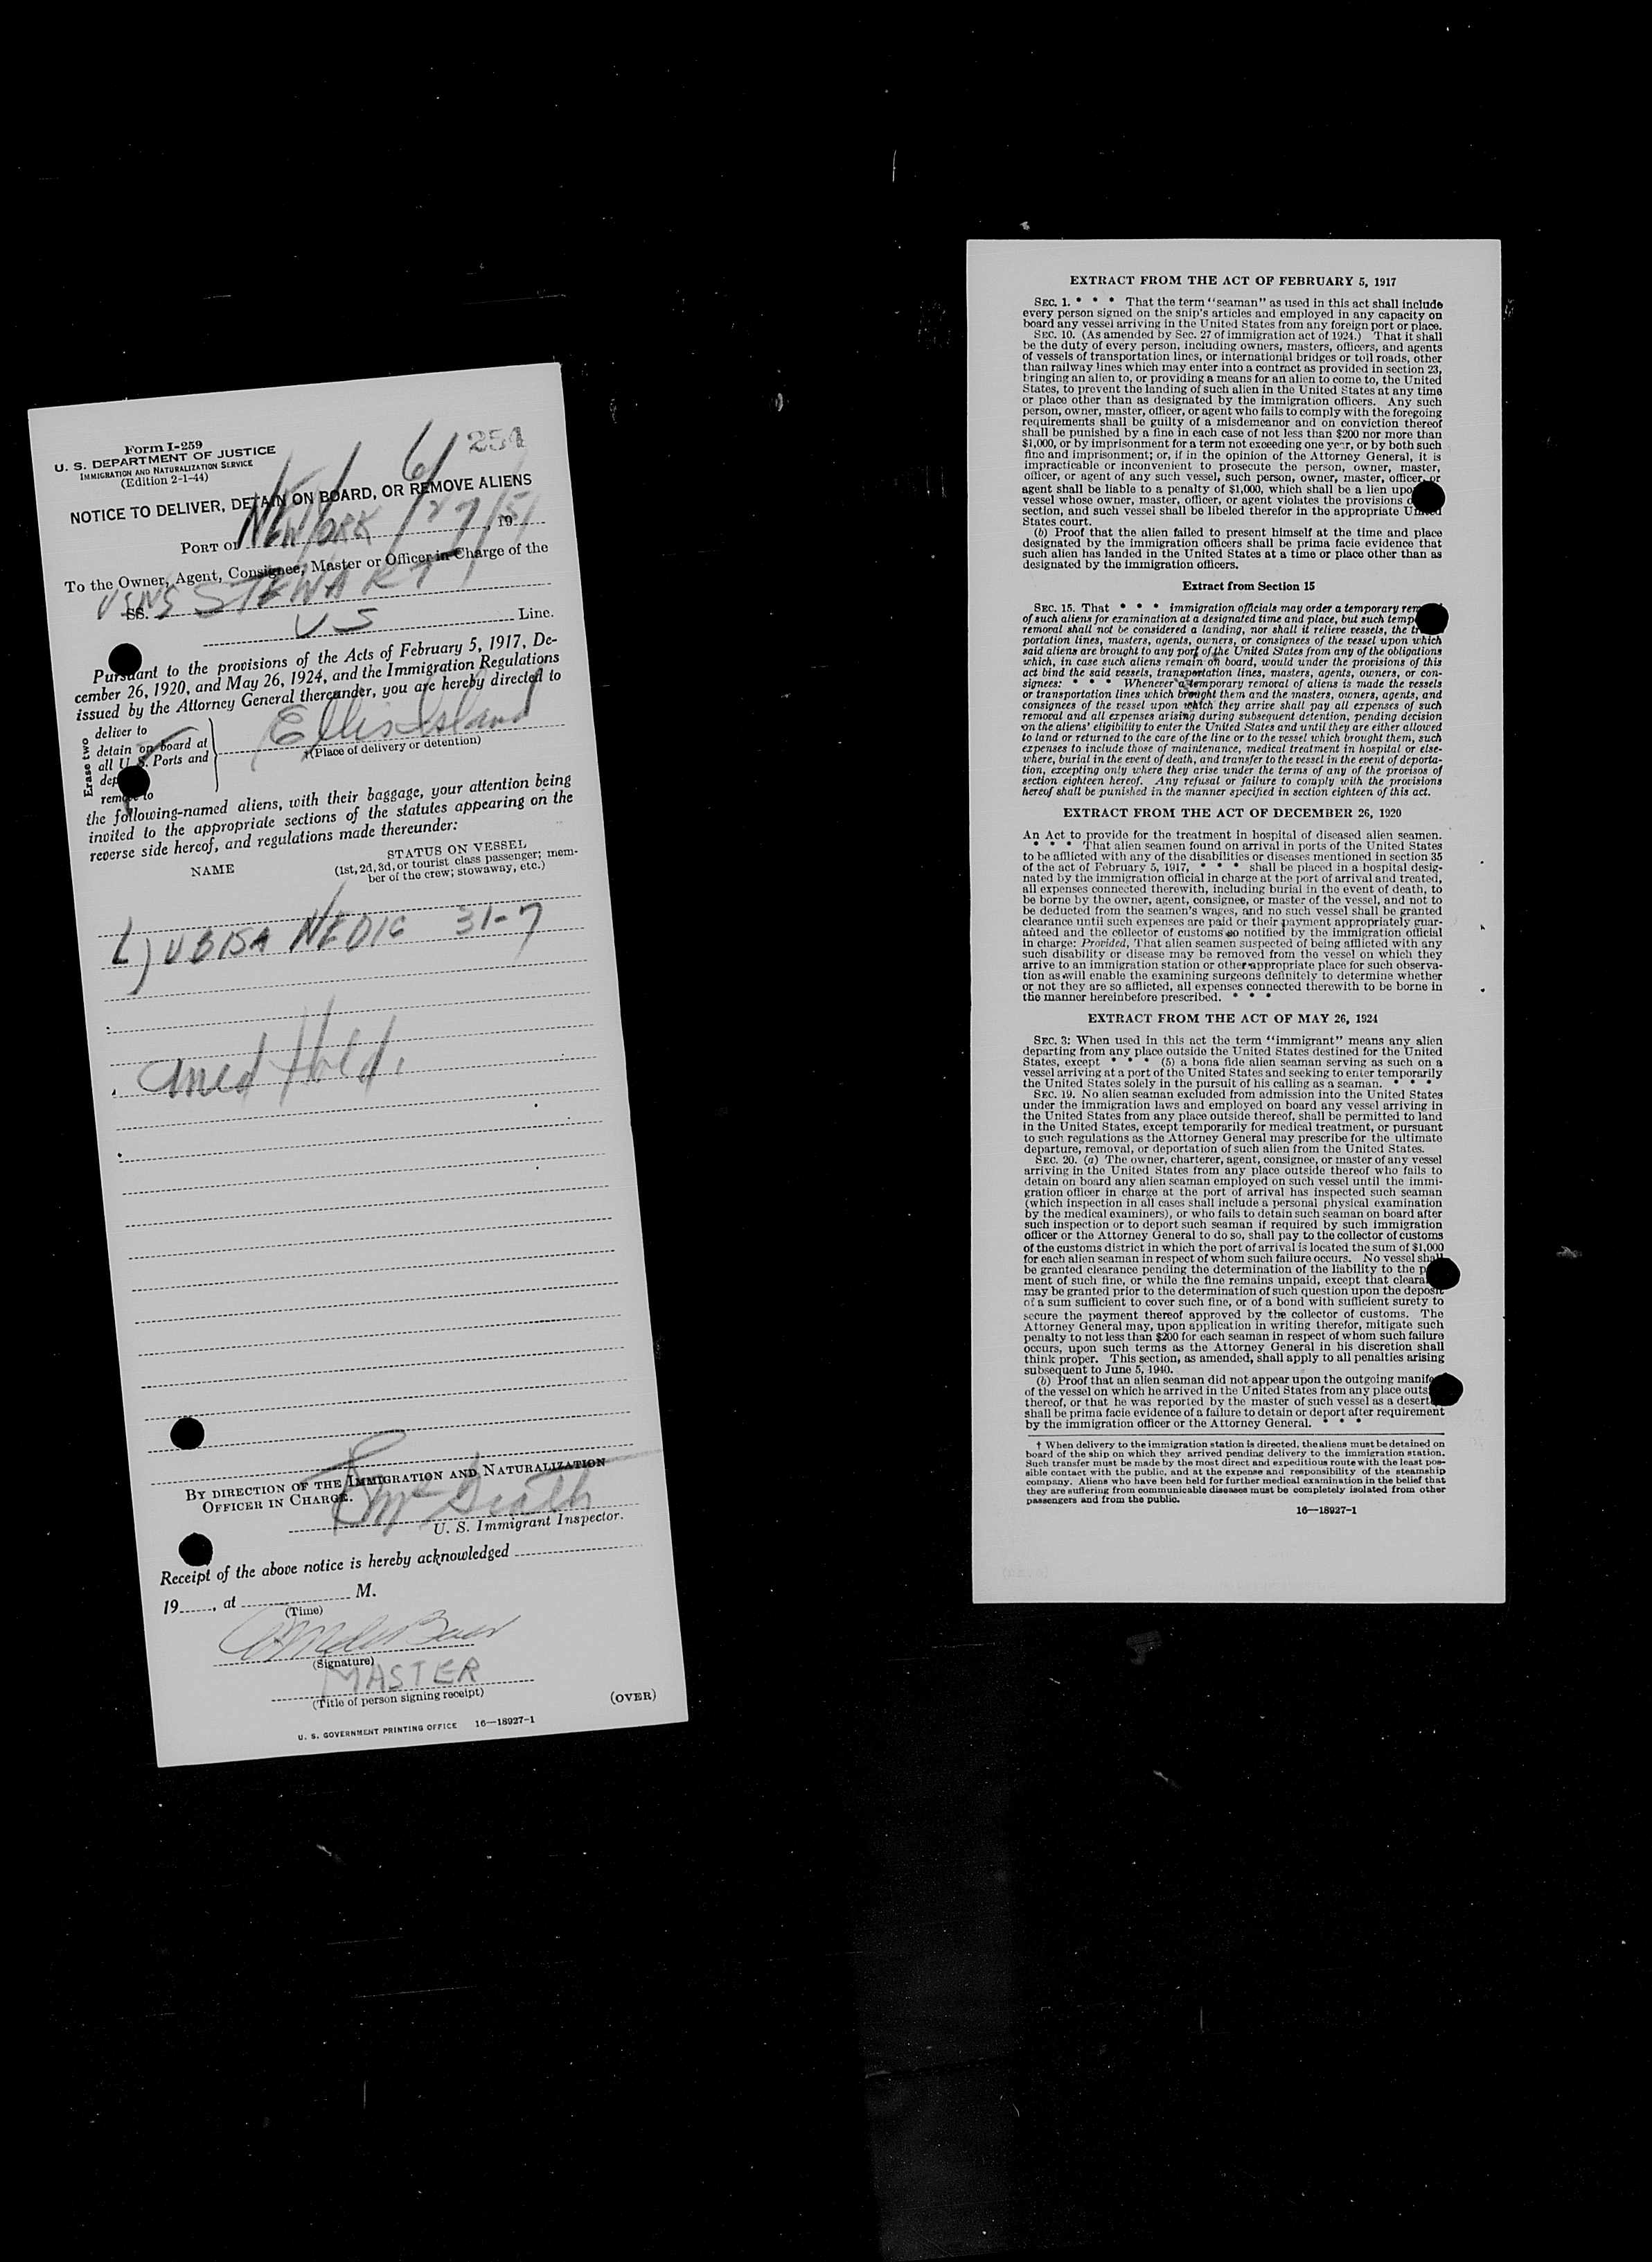 Form I-259
U. S. DEPARTMENT OF JUSTICE
IMMIGRATION AND NATURALIZATION SERVICE
(Edition 2-1-44)
254
NOTICE TO DELIVER, DETAIN ON BOARD, OR REMOVE ALIENS
PORT OF NEW YORK 6/27/51, 19
To the Owner, Agent, Consignee, Master or Officer in Charge of the
SS. USNS STEWART
US Line.
Pursuant to the provisions of the Acts of February 5, 1917, De-
cember 26, 1920, and May 26, 1924, and the Immigration Regulations
issued by the Attorney General thereunder, you are hereby directed to
Erase two
deliver to
detain on board at
all U. S. Ports and
dep
remove to
Ellis Island
†(Place of delivery or detention)
the following-named aliens, with their baggage, your attention being
invited to the appropriate sections of the statutes appearing on the
reverse side hereof, and regulations made thereunder:
NAME
STATUS ON VESSEL
(1st, 2d, 3d, or tourist class passenger; mem-
ber of the crew; stowaway, etc.)
LJUBISA NEDIC 31-7
Med Hold.
BY DIRECTION OF THE IMMIGRATION AND NATURALIZATION
OFFICER IN CHARGE.
McGrath
U. S. Immigrant Inspector.
Receipt of the above notice is hereby acknowledged
19, at M.
(Time)
(Signature)
MASTER
(Title of person signing receipt)
(OVER)
U. S. GOVERNMENT PRINTING OFFICE 16—18927-1
EXTRACT FROM THE ACT OF FEBRUARY 5, 1917
SEC. 1. * * * That the term "seaman" as used in this act shall include
every person signed on the snip's articles and employed in any capacity on
board any vessel arriving in the United States from any foreign port or place.
SEC. 10. (As amended by Sec. 27 of immigration act of 1924.) That it shall
be the duty of every person, including owners, masters, officers, and agents
of vessels of transportation lines, or international bridges or toll roads, other
than railway lines which may enter into a contract as provided in section 23,
bringing an alien to, or providing a means for an alien to come to, the United
States, to prevent the landing of such alien in the United States at any time
or place other than as designated by the immigration officers. Any such
person, owner, master, officer, or agent who fails to comply with the foregoing
requirements shall be guilty of a misdemeanor and on conviction thereof
shall be punished by a fine in each case of not less than $200 nor more than
$1,000, or by imprisonment for a term not exceeding one year, or by both such
fine and imprisonment; or, if in the opinion of the Attorney General, it is
impracticable or inconvenient to prosecute the person, owner, master,
officer, or agent of any such vessel, such person, owner, master, officer, or
agent shall be liable to a penalty of $1,000, which shall be a lien upo
vessel whose owner, master, officer, or agent violates the provisions o
section, and such vessel shall be libeled therefor in the appropriate United
States court.
(b) Proof that the alien failed to present himself at the time and place
designated by the immigration officers shall be prima facie evidence that
such alien has landed in the United States at a time or place other than as
designated by the immigration officers.
Extract from Section 15
SEC. 15. That * * * immigration officials may order a temporary rem
of such aliens for examination at a designated time and place, but such temp
removal shall not be considered a landing, nor shall it relieve vessels, the tr
portation lines, masters, agents, owners, or consignees of the vessel upon which
said aliens are brought to any port of the United States from any of the obligations
which, in case such aliens remain on board, would under the provisions of this
act bind the said vessels, transportation lines, masters, agents, owners, or con-
signees: * * * Whenever a temporary removal of aliens is made the vessels
or transportation lines which brought them and the masters, owners, agents, and
consignees of the vessel upon which they arrive shall pay all expenses of such
removal and all expenses arising during subsequent detention, pending decision
on the aliens' eligibility to enter the United States and until they are either allowed
to land or returned to the care of the line or to the vessel which brought them, such
expenses to include those of maintenance, medical treatment in hospital or else-
where, burial in the event of death, and transfer to the vessel in the event of deporta-
tion, excepting only where they arise under the terms of any of the provisos of
section eighteen hereof. Any refusal or failure to comply with the provisions
hereof shall be punished in the manner specified in section eighteen of this act.
EXTRACT FROM THE ACT OF DECEMBER 26, 1920
An Act to provide for the treatment in hospital of diseased alien seamen.
* * * That alien seamen found on arrival in ports of the United States
to be afflicted with any of the disabilities or diseases mentioned in section 35
of the act of February 5, 1917, * * * shall be placed in a hospital desig-
nated by the immigration official in charge at the port of arrival and treated,
all expenses connected therewith, including burial in the event of death, to
be borne by the owner, agent, consignee, or master of the vessel, and not to
be deducted from the seamen's wages, and no such vessel shall be granted
clearance until such expenses are paid or their payment appropriately guar-
anteed and the collector of customs so notified by the immigration official
in charge: Provided, That alien seamen suspected of being afflicted with any
such disability or disease may be removed from the vessel on which they
arrive to an immigration station or other appropriate place for such observa-
tion as will enable the examining surgeons definitely to determine whether
or not they are so afflicted, all expenses connected therewith to be borne in
the manner hereinbefore prescribed. * * *
EXTRACT FROM THE ACT OF MAY 26, 1924
SEC. 3: When used in this act the term "immigrant" means any alien
departing from any place outside the United States destined for the United
States, except * * * (5) a bona fide alien seaman serving as such on a
vessel arriving at a port of the United States and seeking to enter temporarily
the United States solely in the pursuit of his calling as a seaman. * * *
SEC. 19. No alien seaman excluded from admission into the United States
under the immigration laws and employed on board any vessel arriving in
the United States from any place outside thereof, shall be permitted to land
in the United States, except temporarily for medical treatment, or pursuant
to such regulations as the Attorney General may prescribe for the ultimate
departure, removal, or deportation of such alien from the United States.
SEC. 20. (a) The owner, charterer, agent, consignee, or master of any vessel
arriving in the United States from any place outside thereof who fails to
detain on board any alien seaman employed on such vessel until the immi-
gration officer in charge at the port of arrival has inspected such seaman
(which inspection in all cases shall include a personal physical examination
by the medical examiners), or who fails to detain such seaman on board after
such inspection or to deport such seaman if required by such immigration
officer or the Attorney General to do so, shall pay to the collector of customs
of the customs district in which the port of arrival is located the sum of $1,000
for each alien seaman in respect of whom such failure occurs. No vessel shall
be granted clearance pending the determination of the liability to the p
ment of such fine, or while the fine remains unpaid, except that cleara
may be granted prior to the determination of such question upon the deposit
of a sum sufficient to cover such fine, or of a bond with sufficient surety to
secure the payment thereof approved by the collector of customs. The
Attorney General may, upon application in writing therefor, mitigate such
penalty to not less than $200 for each seaman in respect of whom such failure
occurs, upon such terms as the Attorney General in his discretion shall
think proper. This section, as amended, shall apply to all penalties arising
subsequent to June 5, 1940.
(b) Proof that an alien seaman did not appear upon the outgoing manife
of the vessel on which he arrived in the United States from any place outs
thereof, or that he was reported by the master of such vessel as a desert
shall be prima facie evidence of a failure to detain or deport after requirement
by the immigration officer or the Attorney General. * * *
† When delivery to the immigration station is directed, the aliens must be detained on
board of the ship on which they arrived pending delivery to the immigration station.
Such transfer must be made by the most direct and expeditious route with the least pos-
sible contact with the public, and at the expense and responsibility of the steamship
company. Aliens who have been held for further medical examination in the belief that
they are suffering from communicable diseases must be completely isolated from other
passengers and from the public.
16—18927-1